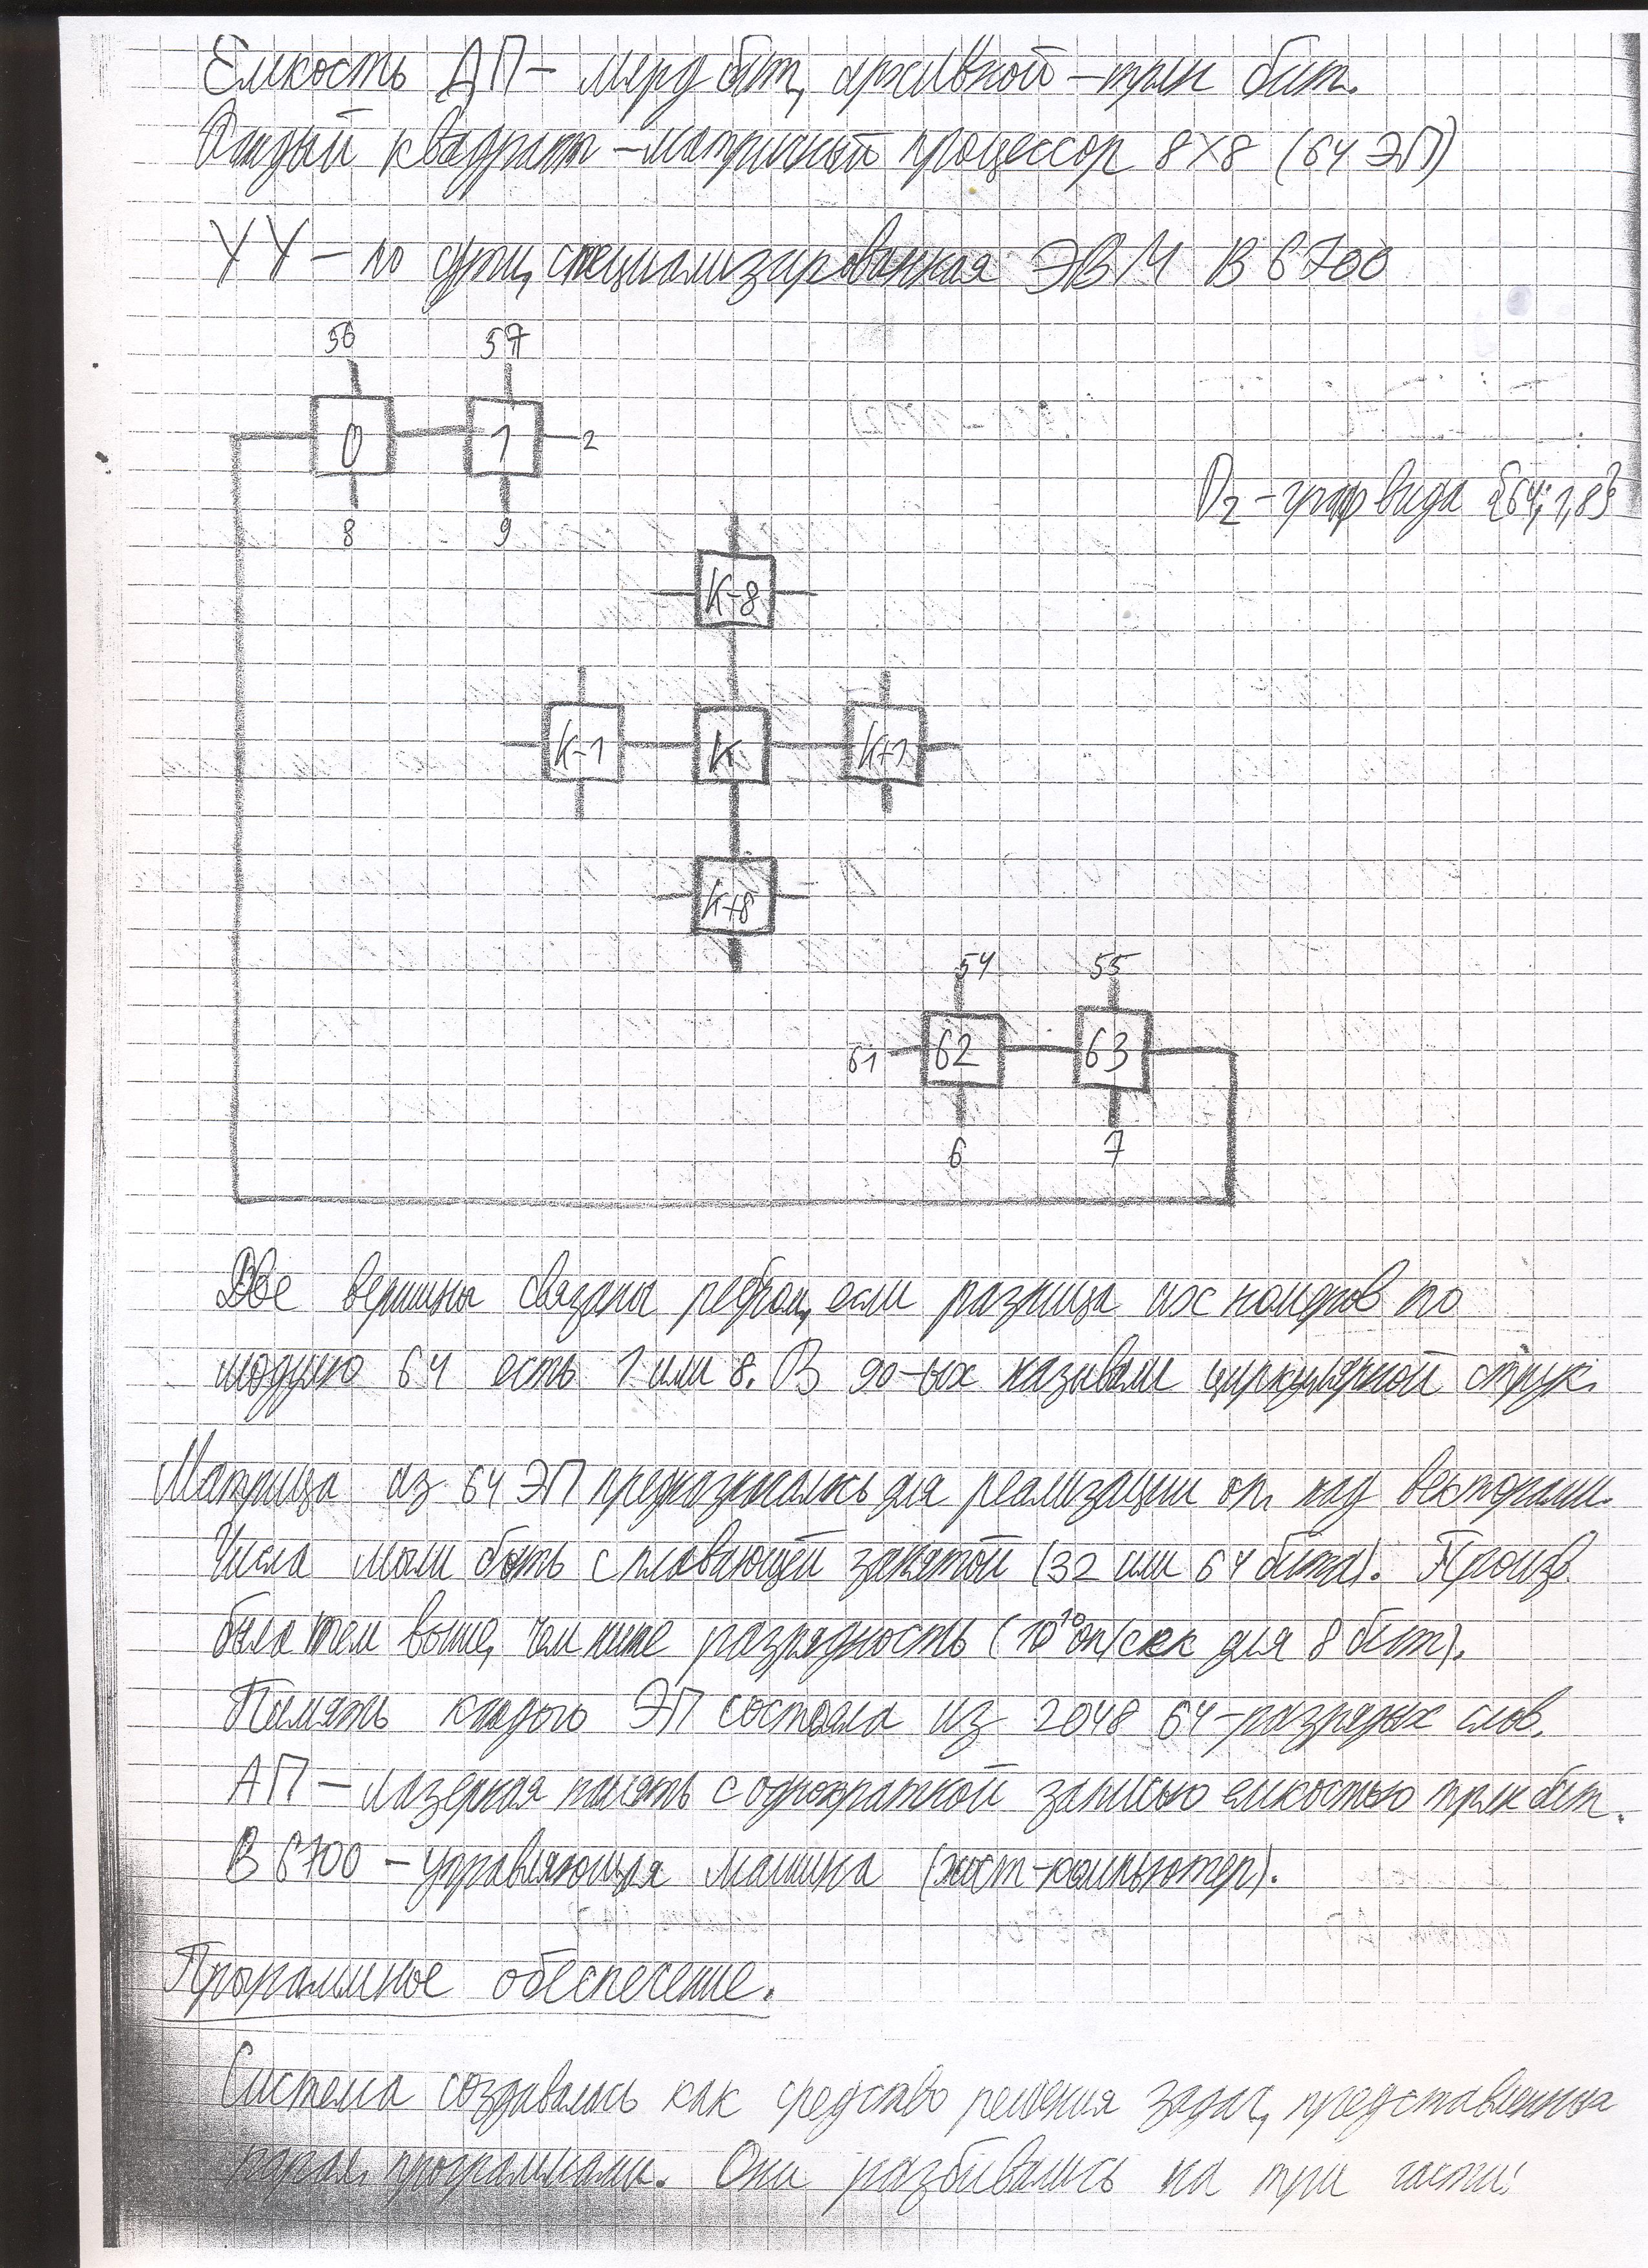 Емкость ДП – млрд бит, архивной – трлн бит.
Каждый квадрат – матричный процессор 8X8 (64 ЭП)
УУ – по сути, специализированная ЭВМ B 6700
56 57
0 1 2
8 9
D2 – граф вида {64; 1, 8}
K-8
K-1 K K+1
K+8
54 55
61 62 63
6 7
Две вершины связаны ребром, если разница их номеров по
модулю 64 есть 1 или 8. В 90-ых называли циркулярной струк.
Матрица из 64 ЭП предназначалась для реализации оп. над векторами.
Числа могли быть с плавающей запятой (32 или 64 бита). Произв.
была тем выше, чем ниже разрядность (10^10 оп/сек для 8 бит).
Память каждого ЭП состояла из 2048 64-разрядых слов.
АП – лазерная память с однократной записью емкостью трлн бит.
B 6700 – управляющая машина (хост-компьютер).
Программное обеспечение.
Система создавалась как средство решения задач, представленных
парал. программами. Они разбивались на три части: